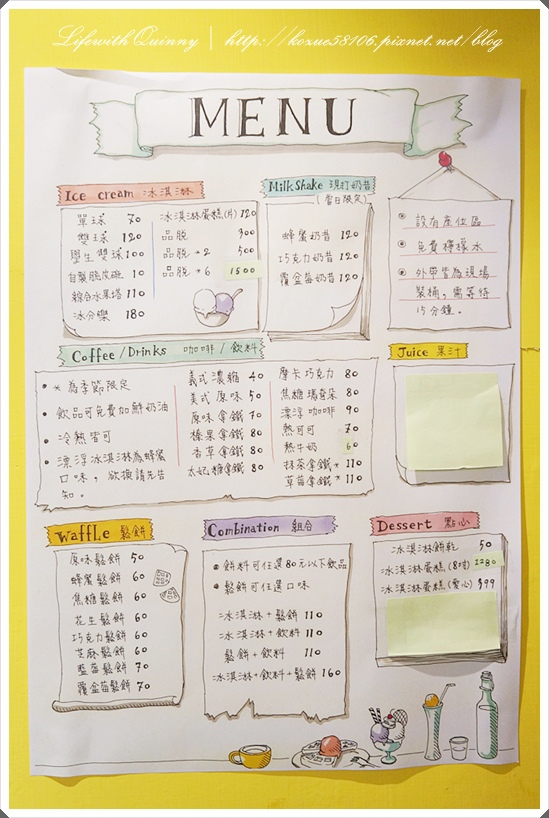 Lifewith Quinny | http://kozue58106.pixnet.net/blog
MENU
Ice cream 冰淇淋
單球 70
雙球 120
學生雙球 100
自製脆皮碗 10
綜合水果塔 110
冰分樂 180
冰淇淋蛋糕(片) 120
品脫 300
品脫*2 500
品脫*6 1500
MilkShake 現打奶昔
(當日限定)
蜂蜜奶昔 120
巧克力奶昔 120
覆盆莓奶昔 120
設有座位區
免費檸檬水
外帶皆為現場
裝桶,需等待
15分鐘。
Coffee/Drinks 咖啡/飲料
* 為季節限定
飲品可免費加鮮奶油
冷熱皆可
漂浮冰淇淋為蜂蜜
口味,欲換請先告
知。
義式濃縮 40
美式原味 50
原味拿鐵 70
榛果拿鐵 80
香草拿鐵 80
太妃糖拿鐵 80
摩卡巧克力 80
焦糖瑪奇朵 80
漂浮咖啡 90
熱可可 70
熱牛奶 60
抹茶拿鐵* 110
草莓拿鐵* 110
Juice 果汁
Waffle 鬆餅
原味鬆餅 50
蜂蜜鬆餅 60
焦糖鬆餅 60
花生鬆餅 60
巧克力鬆餅 60
芝麻鬆餅 60
藍莓鬆餅 70
覆盆莓鬆餅 70
Combination 組合
飲料可任選80元以下飲品
鬆餅可任選口味
冰淇淋+鬆餅 110
冰淇淋+飲料 110
鬆餅+飲料 110
冰淇淋+飲料+鬆餅 160
Dessert 點心
冰淇淋餅乾 50
冰淇淋蛋糕(8吋) 1280
冰淇淋蛋糕(愛心) 399